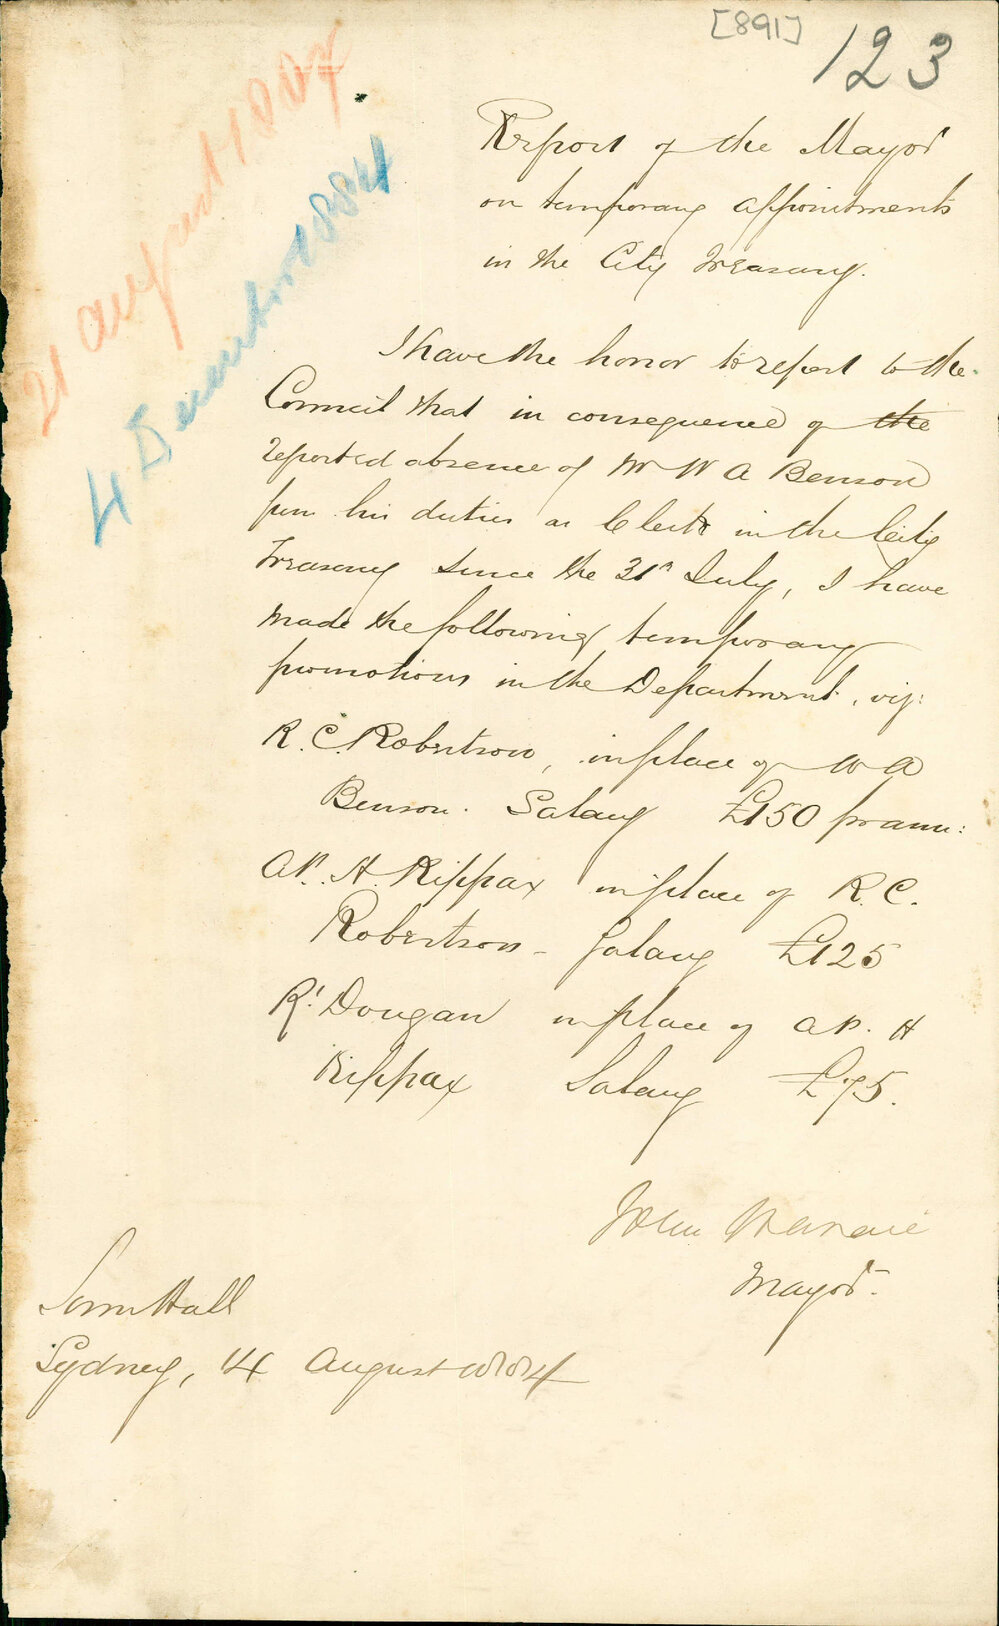 [891]
123
21 August 1884
4 December 1884
Report of the Mayor
on temporary appointments
in the City Treasury.
I have the honor to report to the
Council that in consequence of the
reported absence of Mr W A Benson
from his duties as Clerk in the City
Treasury since the 31st July, I have
made the following temporary
promotions in the Department, viz:
R. C. Robertson, in place of W A
Benson. Salary £150 per ann:
A. H. Kippax in place of R. C.
Robertson - Salary £125
R. Dougan in place of A. H
Kippax Salary £75.
John Hardie
Mayor.
Town Hall
Sydney, 14 August 1884